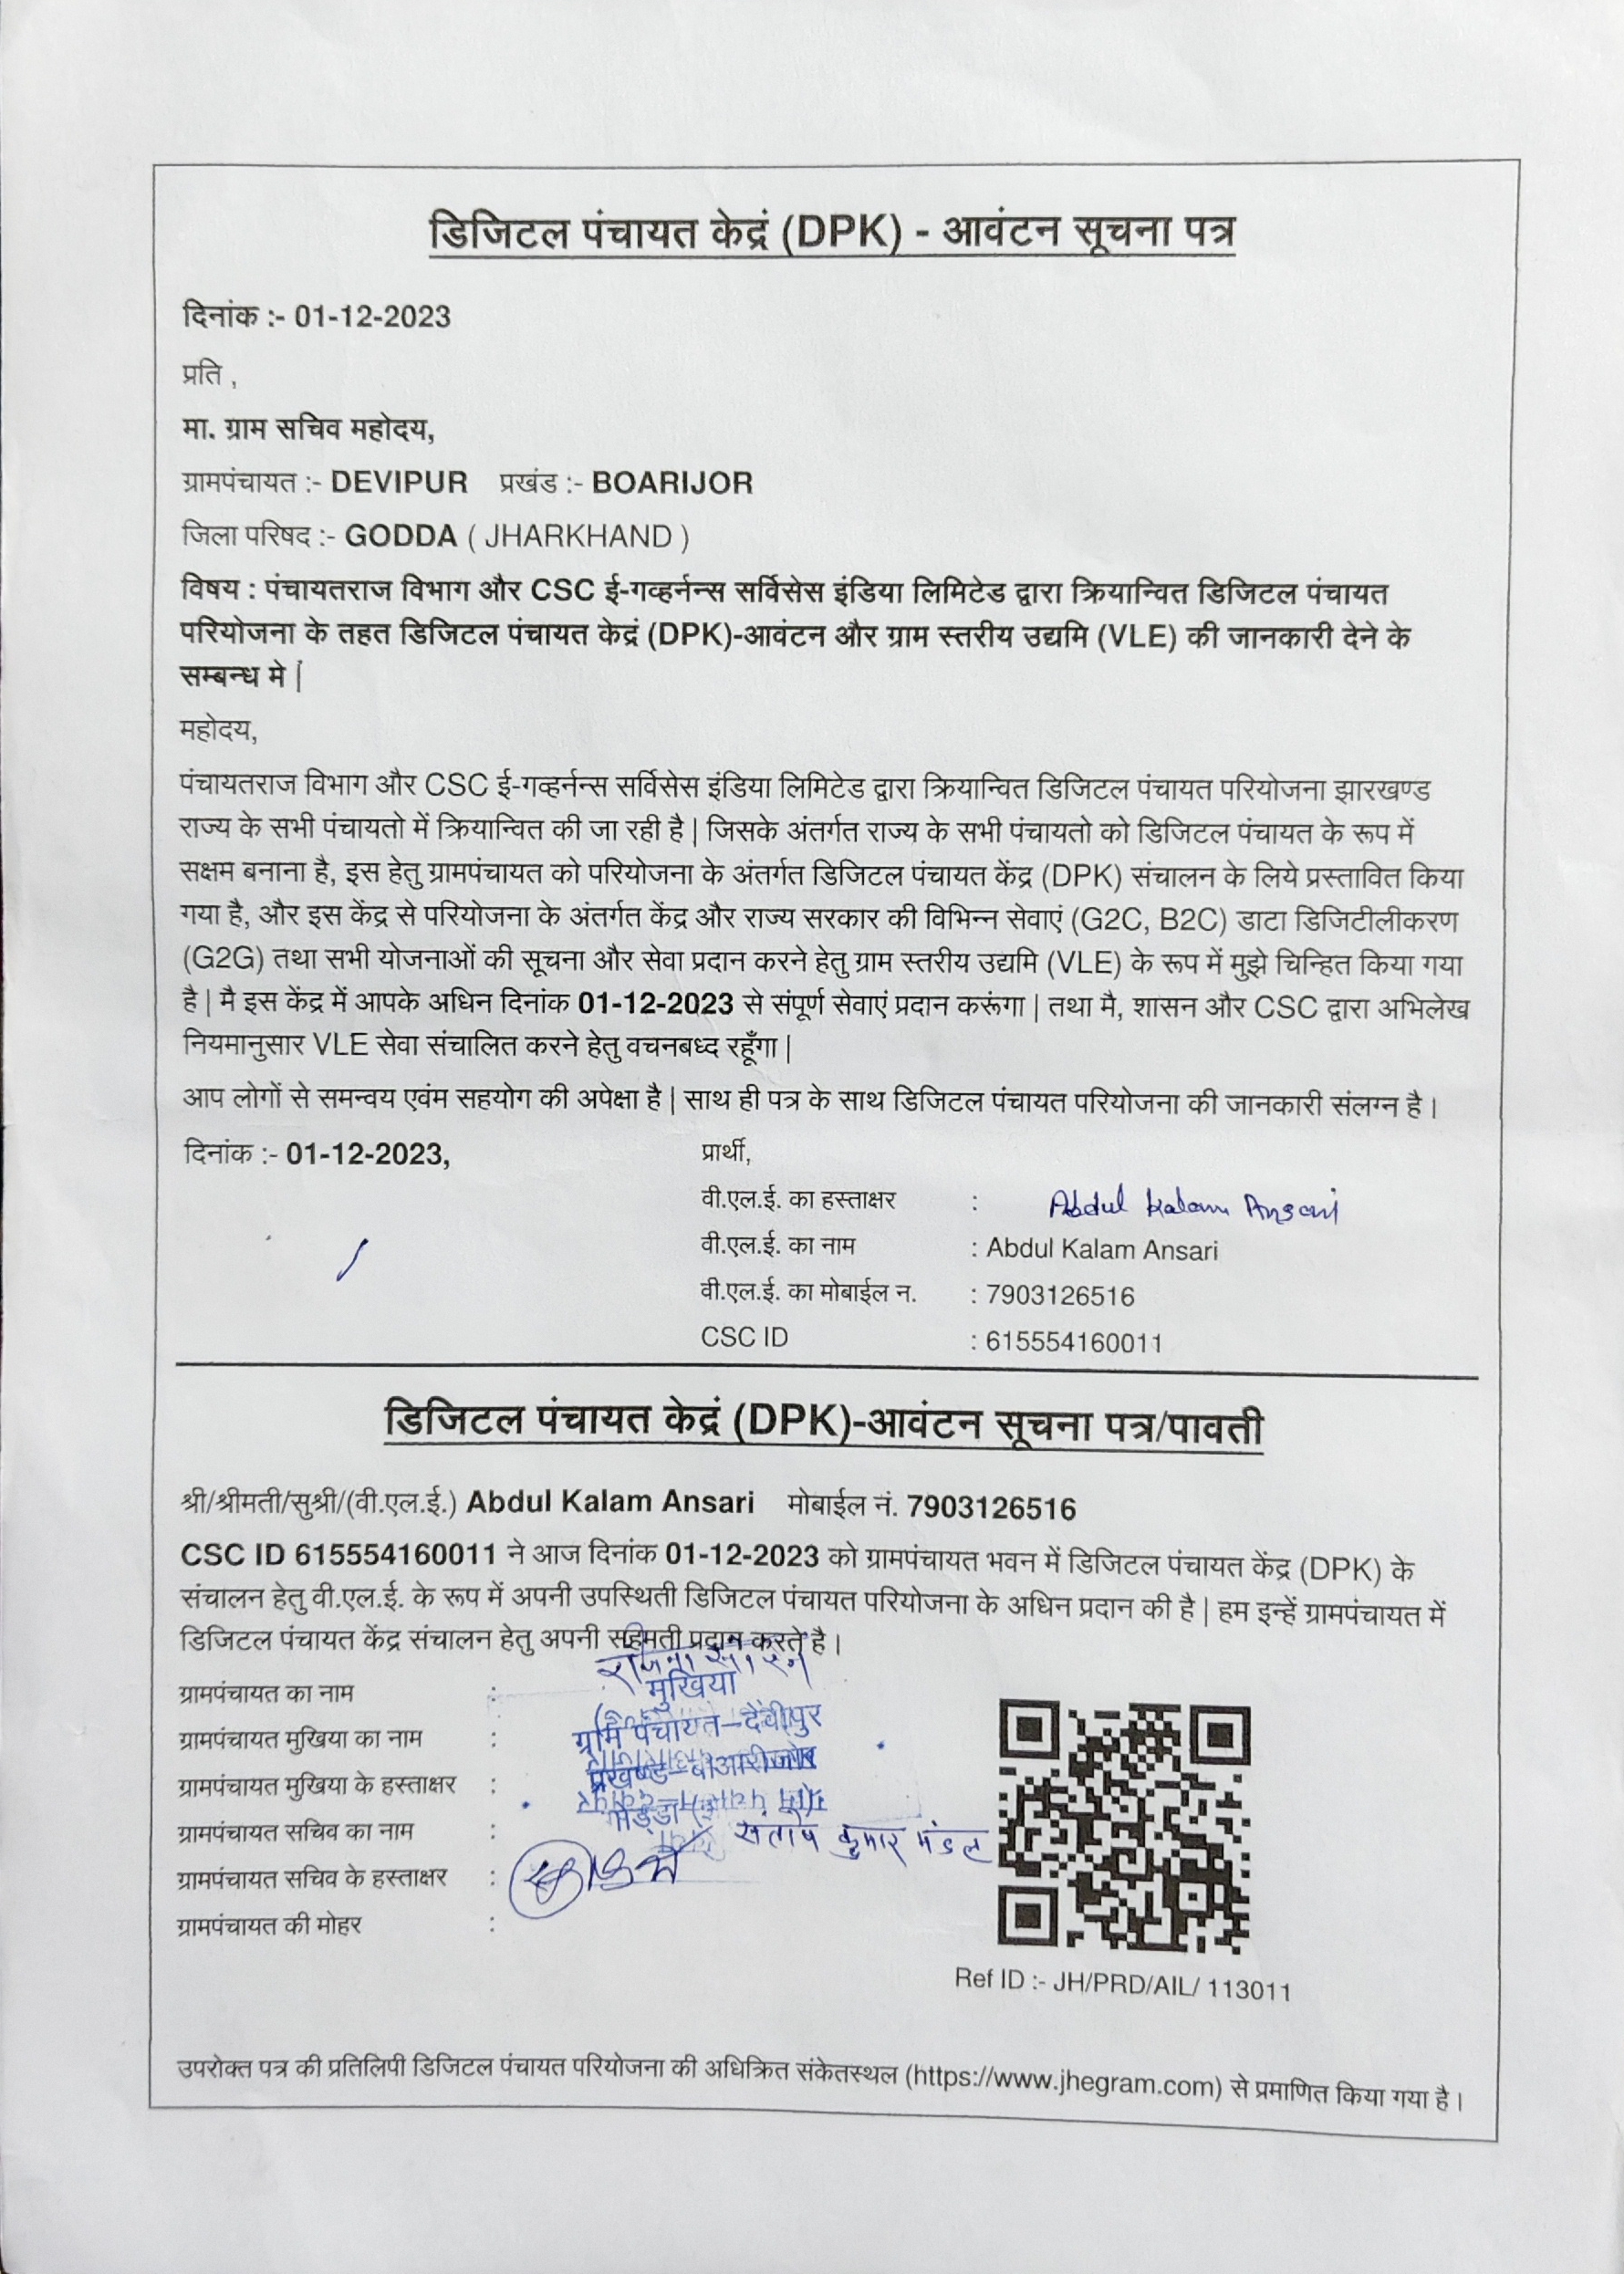 डिजिटल पंचायत केद्रं (DPK) - आवंटन सूचना पत्र
दिनांक :- 01-12-2023
प्रति ,
मा. ग्राम सचिव महोदय,
ग्रामपंचायत :- DEVIPUR प्रखंड :- BOARIJOR
जिला परिषद :- GODDA ( JHARKHAND )
विषय : पंचायतराज विभाग और CSC ई-गव्हर्नन्स सर्विसेस इंडिया लिमिटेड द्वारा क्रियान्वित डिजिटल पंचायत
परियोजना के तहत डिजिटल पंचायत केद्रं (DPK)-आवंटन और ग्राम स्तरीय उद्यमि (VLE) की जानकारी देने के
सम्बन्ध मे |
महोदय,
पंचायतराज विभाग और CSC ई-गव्हर्नन्स सर्विसेस इंडिया लिमिटेड द्वारा क्रियान्वित डिजिटल पंचायत परियोजना झारखण्ड
राज्य के सभी पंचायतो में क्रियान्वित की जा रही है | जिसके अंतर्गत राज्य के सभी पंचायतो को डिजिटल पंचायत के रूप में
सक्षम बनाना है, इस हेतु ग्रामपंचायत को परियोजना के अंतर्गत डिजिटल पंचायत केंद्र (DPK) संचालन के लिये प्रस्तावित किया
गया है, और इस केंद्र से परियोजना के अंतर्गत केंद्र और राज्य सरकार की विभिन्न सेवाएं (G2C, B2C) डाटा डिजिटीलीकरण
(G2G) तथा सभी योजनाओं की सूचना और सेवा प्रदान करने हेतु ग्राम स्तरीय उद्यमि (VLE) के रूप में मुझे चिन्हित किया गया
है | मै इस केंद्र में आपके अधिन दिनांक 01-12-2023 से संपूर्ण सेवाएं प्रदान करूंगा | तथा मै, शासन और CSC द्वारा अभिलेख
नियमानुसार VLE सेवा संचालित करने हेतु वचनबध्द रहूँगा |
आप लोगों से समन्वय एवंम सहयोग की अपेक्षा है | साथ ही पत्र के साथ डिजिटल पंचायत परियोजना की जानकारी संलग्न है।
दिनांक :- 01-12-2023, प्रार्थी,
वी.एल.ई. का हस्ताक्षर : Abdul Kalam Ansari
वी.एल.ई. का नाम : Abdul Kalam Ansari
वी.एल.ई. का मोबाईल न. : 7903126516
CSC ID : 615554160011
डिजिटल पंचायत केद्रं (DPK)-आवंटन सूचना पत्र/पावती
श्री/श्रीमती/सुश्री/(वी.एल.ई.) Abdul Kalam Ansari मोबाईल नं. 7903126516
CSC ID 615554160011 ने आज दिनांक 01-12-2023 को ग्रामपंचायत भवन में डिजिटल पंचायत केंद्र (DPK) के
संचालन हेतु वी.एल.ई. के रूप में अपनी उपस्थिती डिजिटल पंचायत परियोजना के अधिन प्रदान की है | हम इन्हें ग्रामपंचायत में
डिजिटल पंचायत केंद्र संचालन हेतु अपनी सहमती प्रदान करते है।
मुखिया
ग्रामपंचायत का नाम :
ग्राम पंचायत–देवीपुर
ग्रामपंचायत मुखिया का नाम :
प्रखण्ड–बोआरीजोर
ग्रामपंचायत मुखिया के हस्ताक्षर :
गोड्डा
ग्रामपंचायत सचिव का नाम : संतोष कुमार मंडल
ग्रामपंचायत सचिव के हस्ताक्षर :
ग्रामपंचायत की मोहर :
Ref ID :- JH/PRD/AIL/ 113011
उपरोक्त पत्र की प्रतिलिपी डिजिटल पंचायत परियोजना की अधिक्रित संकेतस्थल (https://www.jhegram.com) से प्रमाणित किया गया है।